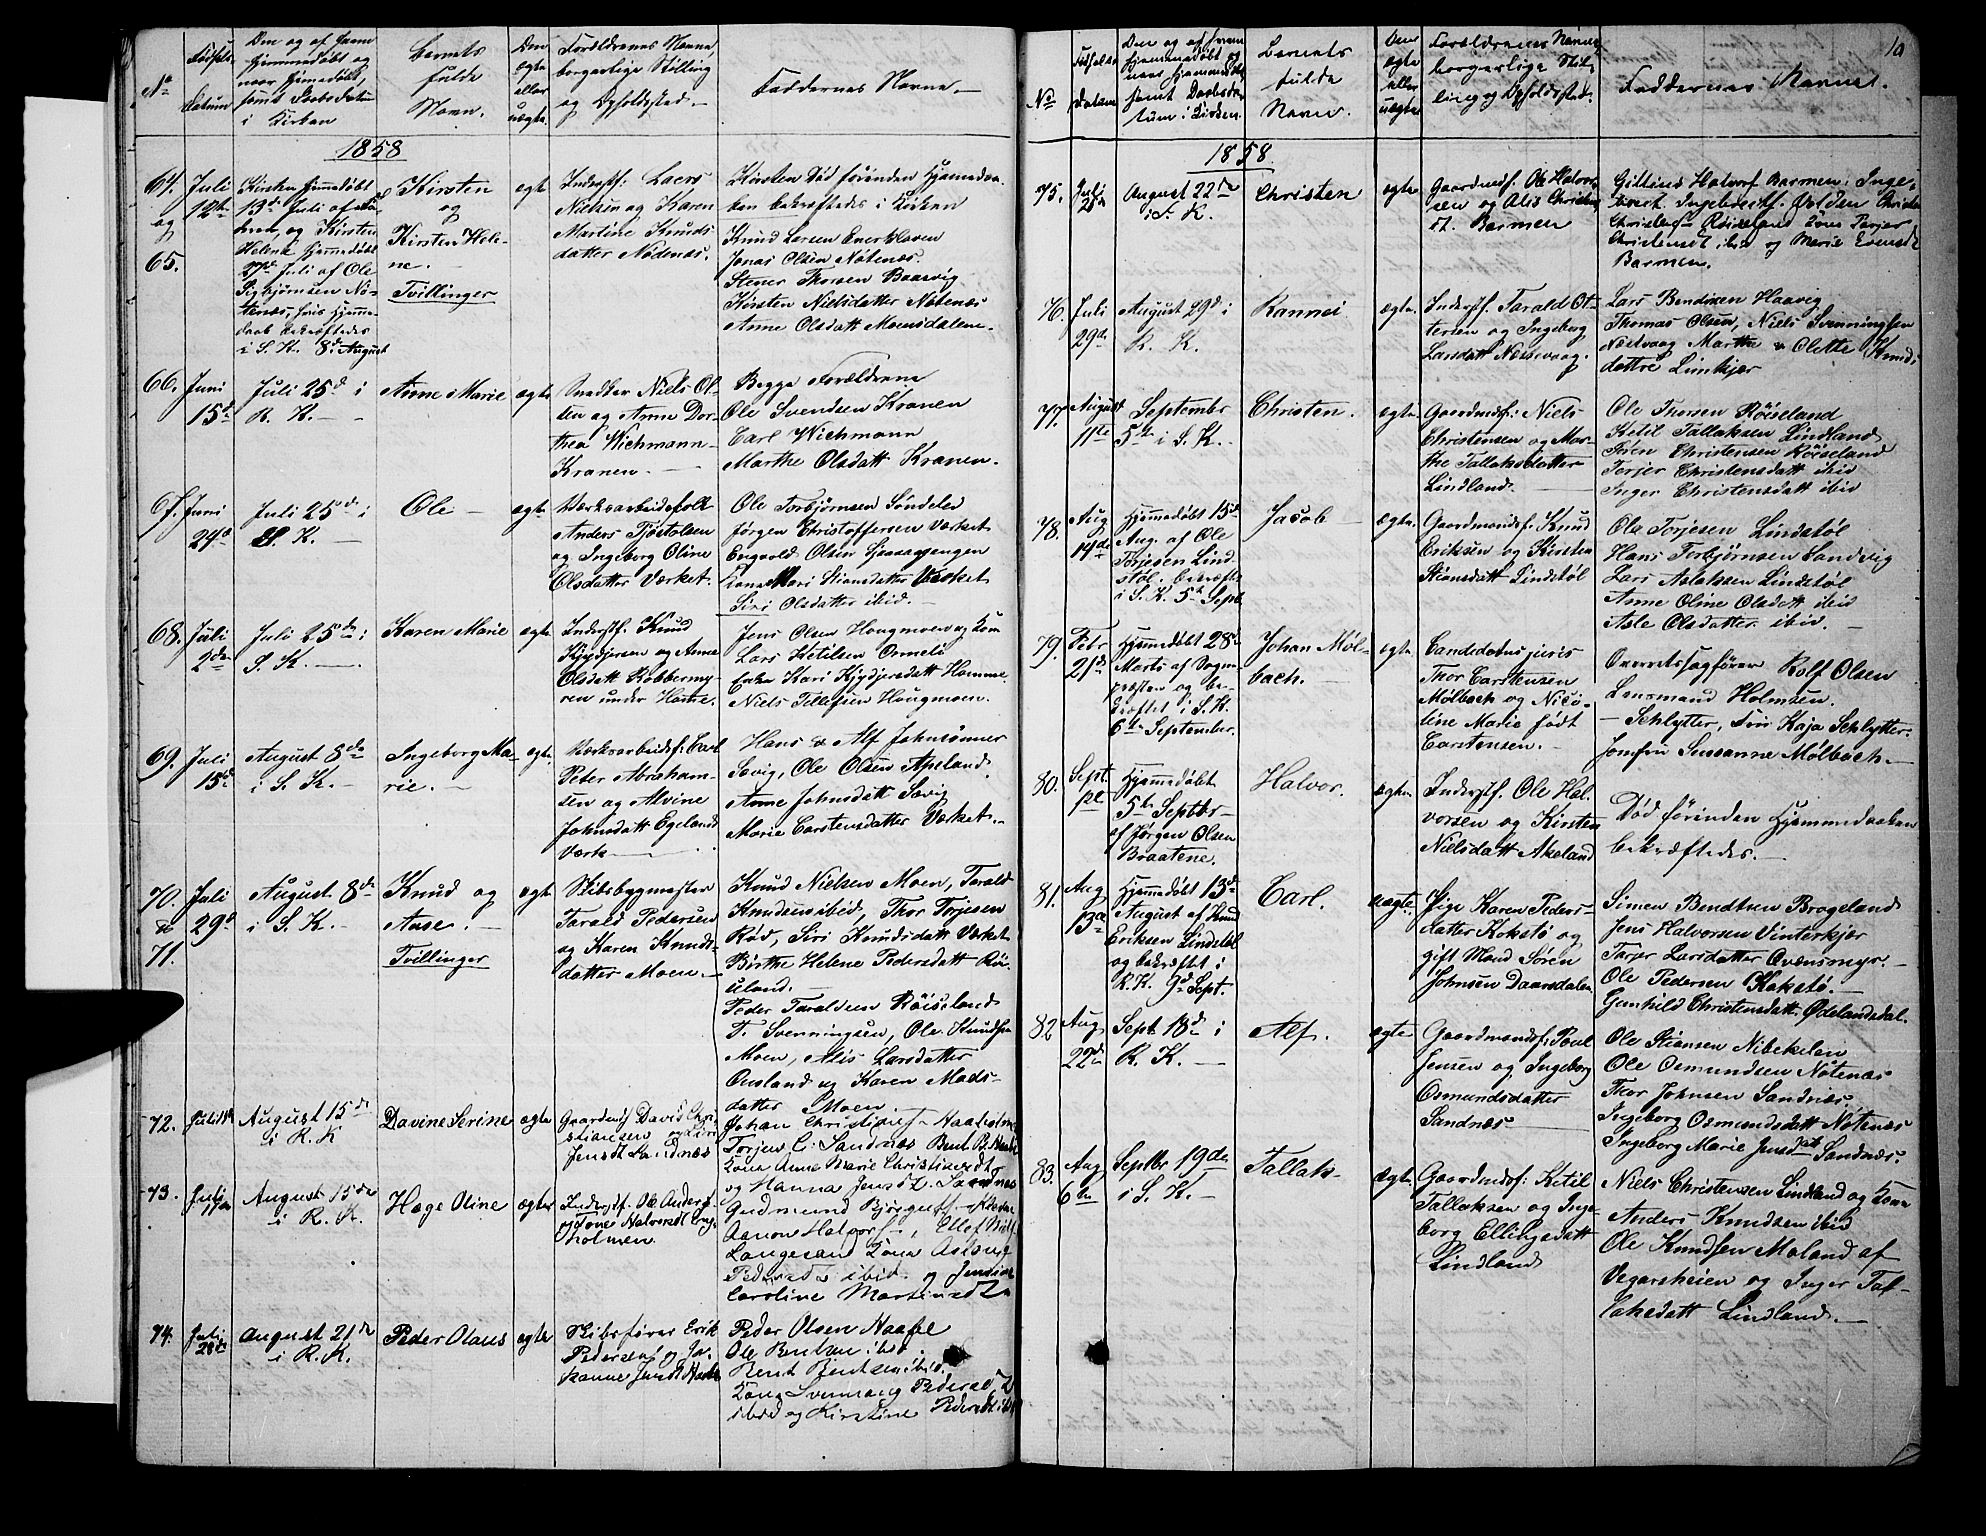 No
Fødsels-
Datum
Om og af hvem
hjemmedøbt og
naar hjemmedøbt,
samt Daabsdatum
i Kirken
Barnets
fulde
Navn.
Om
ægte
eller
uægte
Forældrenes Navne,
borgerlige Stilling
og Opholdssted.
Faddernes Navne.
1858
64.
og
65.
Juli
12te
Kirsten hjemmedøbt
13d Juli af
og Kirsten
Helene hjemmedøbt
27d Juli af Ole
Sigbjørnsen Nö-
tenæs, hvis hjemme-
daab bekræftedes
i S. K. 8d August
Kirsten
og
Kirsten Hele-
ne.
Tvillinger
ægte
Inderstf: Laers
Nielsen og Karen
Martine Knuds-
datter Nödenæs.
Kirsten Död förinden Hjemmedaa-
ben bekræftedes i Kirken
Knud Larsen
Jonas Olsen Nötenæs.
Stener Thorsen Baasvig
Kirsten Nielsdatter Nötenæs
Anne Olsdatt Moensdalen.
66.
Juni
15d
Juli 25d i
R. K.
Anne Marie
ægte
Snedker Niels Ol-
sen og Anne Dor-
thea Wichmann
Kranen.
Begge Forældrene
Ole Svendsen Kranen
Carl Wichmann
Marthe Olsdatt Kranen.
67.
Juni
24d
Juli 25de i
S. K.
Ole
ægte
Værksarbeidsfolk
Anders Tjöstolsen
og Ingeborg Oline
Olsdatter Værket.
Ole Torbjörnsen Söndeled
Jørgen Christoffersen Værket
Engvold Olsen
Kone Mari Stiansdatter Værket
Siri Olsdatter ibid.
68.
Juli
2den
Juli 25de i
S. K.
Karen Marie
ægte
Inderstf. Knud
Kjydjersen og Anne
Olsdatt Robbermy-
ren under Hamre.
Jens Olsen Hougmoen og Kone
Lars Ketilsen Ormeli
Enke Kari Kjydjersdatt Hamme.
Niels Tellefsen Hougmoen.
69.
Juli
15d
August 8de
i S. K.
Ingeborg Ma-
rie.
ægte
Værksarbeidsf: Carl
Peter Abraham-
sen og Alvine
Johnsdatt Egelands
Værk
Hans & Alf Johnsönner
Sævig, Ole Olsen Apeland.
Anne Johnsdatt Sævig
Marie Carstensdatter Værket.
70.
&
71.
Juli
29d
August 8de
i S. K.
Knud og
Aase.
Tvillinger
ægte
Skibsbygmester
Tarald Pedersen
og Karen Knuds-
datter Moen.
Knud Nielsen Moen, Tarald
Knudsen ibid, Thor Torjesen
Rød, Siri Knudsdatt Værket
Birthe Helene Pedersdatt Röi-
seland.
Peder Taraldsen Röiseland
T. Svenningsen, Ole Knudsen
Moen, Alis Larsdatter
Ousland og Karen Mads-
datter Moen.
72.
August 15de
i R. K
Davine Serine
ægte
Gaardmf David Chri-
stiansen og Siri
Jensdt Sandnæs
Johan Christians.
Torjen C. Sandnæs Bent B.
Kone Anne Marie
og Hanna Jensdt. Sandnæs
73.
Juli
17de
August 15de
i R. K.
Hæge Oline
ægte
Inderstf. Ole Anders-
og Tone Halvorsdt
holmen
Gudmund
Aanon Halvors.
Langesand Kone
Pedersdt ibid. og
Caroline
74.
Juli
28de
August 21de
i R. K.
Peder Olaus
ægte
Skibsförer Erik
Pedersen og Jo-
hanne Jensdt
Peder Olsen
Ole Bentsen ibid.
Bent Bentsen ibid.
Kone
ibid og Kirstine Pedersdt ibid
10
No
Fødsels
Datum
Om og af hvem
hjemmedøbt og
naar hjemmedøbt
samt Daabsda-
tum i Kirken
Barnets
fulde
Navn.
Om
ægte
eller
uægte
Forældrenes Navne,
borgerlige Stil-
ling og Opholdssted.
Faddernes Navne.
1858.
75.
Juli
August 22de
i S. K.
Christen
ægte
Gaardmdf. Ole Halvor-
sen og Alis Christen-
dt. Barmen
Halvors Barmen;
Volden
Röiseland
Christensdt ibid og Marie Evensdt
Barmen.
76.
Juli
29de
August 29d i
R. K.
Rannei
ægte
Inderstf. Tarald Ot-
tersen og Ingeborg
Larsdatt Næsvaag.
Lars Bendixen Haavig
Thomas Olsen, Niels Svenningsen
Næsvaag Marthe & Olette Knuds-
dattre Limkjær
77.
August
11te
September
5te i S. K.
Christen.
ægte
Gaardmdsf: Niels
Christensen og Mar-
the Tallaksdatter
Lindland.
Ole Thorsen Röiseland
Ketil Tallaksen Lindland
Sören Christensen Röiseland
Torjer Christensdatt ibid
Inger Christensdatt ibid
78.
Aug
14de
Hjemmedøbt 15d
Aug. af Ole
Torjesen Lind-
stöl. bekræft.
i S. K. 5te Sept.
Jacob
ægte.
Gaardmandsf. Knud
Eriksen og Kirsten
Stiansdatt Lindstöl
Ole Torjesen Lindstöl
Hans Torbjørnsen Sandvig
Lars Aslaksen Lindstöl
Anne Oline Olsdatt ibid
Asle Olsdatter ibid.
79.
Febr
21d
Hjemmedøbt 28d
Marts af Sogne-
præsten og be-
kræftet i S. K.
6te September.
Johan Möl-
bach.
ægte
Candidatus juris
Thor Carstensen
Mölbach og Nico-
line Marie født
Carstensen.
Overretssagfører Rolf Olsen
Lensmand Holmsen.
- Schlytter, frue Kaja Schlytter.
Jomfru Susanne Mölbach.
80.
Sept.
Hjemmedøbt
5te Septbr
af Jørgen Olsen
Braatene.
Halvor.
ægte
Inderstf. Ole Hal-
vorsen og Kirsten
Nielsdatt Akeland
Död förinden Hjemmedaaben
bekræftedes.
81.
Aug
13d
Hjemmedøbt 13d
August af Knud
Eriksen Lindstøl
og bekræftet i
R. K. 9d Sept.
Carl.
uægte.
Pige Karen Peders-
datter Kokstø og
gift Mand Sören
Johnsen Daarsdalen
Simen Bendtsen Brogeland
Jens Halvorsen Vinterkjær
Torjer Larsdatter
Ole Pedersen Kokstø.
Gunhild Christensdatt Ødelandsdal.
82
Aug
22d
Sept. 18d i
R. K.
Alf.
ægte
Gaardmandsf: Poul
Jensen og Ingeborg
Osmundsdatter
Sandnæs
Ole Stiansen Nibekelen
Ole Osmundsen Nötenæs
Thor Johnsen Sandnæs
Ingeborg Osmundsdatt Nötenæs
Ingeborg Marie Jensdatt Sandnæs.
83.
Aug
6te
Septbr 19de
i S. K.
Tallak
ægte.
Gaardmdsf: Ketil
Tallaksen og Inge-
borg Ellingsdatt
Lindland
Niels Christensen Lindland og Kone
Anders Knudsen ibid
Ole Knudsen Moland af
Vegarsheien og Inger Tal-
laksdatt Lindland.